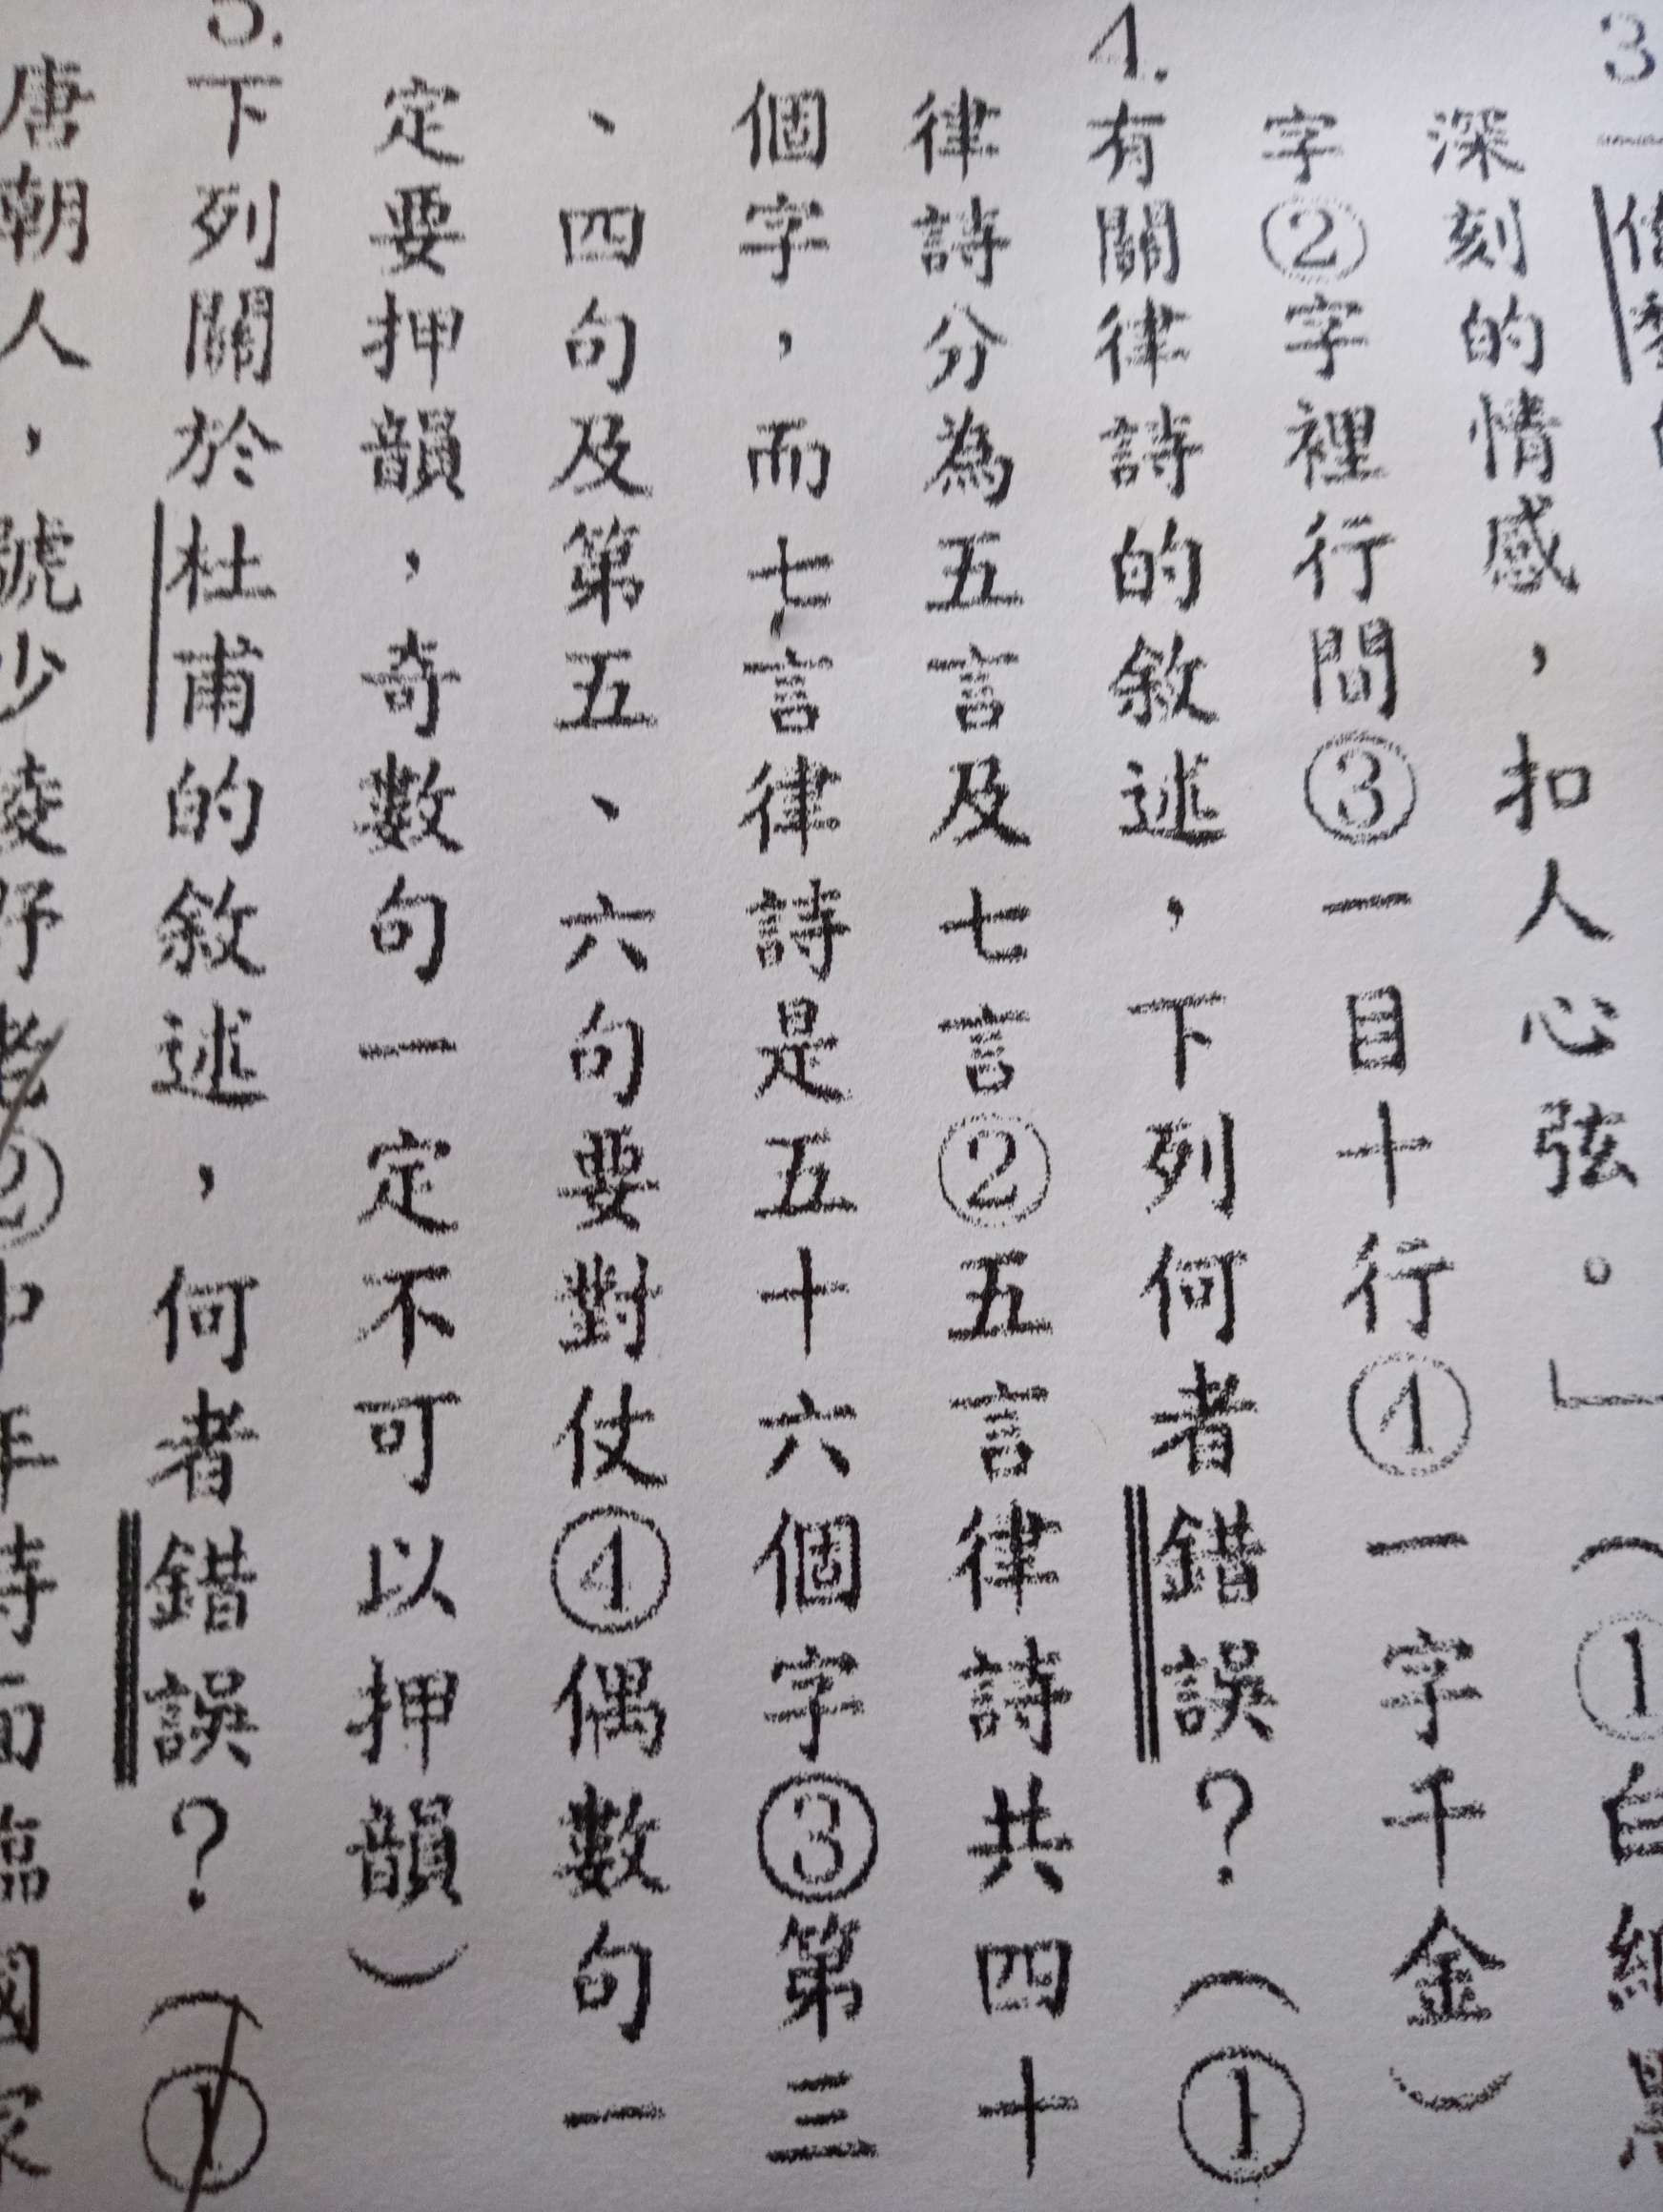 3
深刻的情感，扣人心弦。」（①白紙黑
字②字裡行間③一目十行④一字千金）
4.有關律詩的敘述，下列何者錯誤？（①
律詩分為五言及七言②五言律詩共四十
個字，而七言律詩是五十六個字③第三
、四句及第五、六句要對仗④偶數句一
定要押韻，奇數句一定不可以押韻）
5.下列關於杜甫的敘述，何者錯誤？（①
唐朝人，號少陵野老②中年時面臨國家